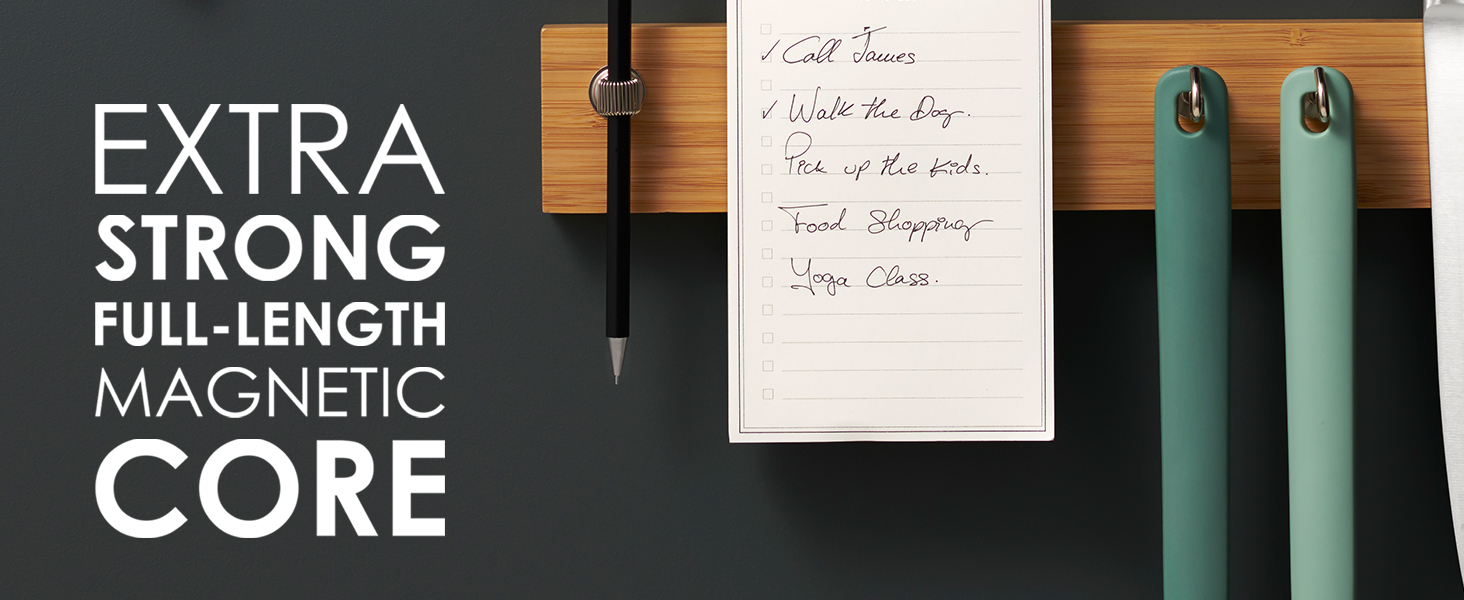 EXTRA
STRONG
FULL-LENGTH
MAGNETIC
CORE
Call James
Walk the Dog.
Pick up the Kids.
Food Shopping
Yoga Class.